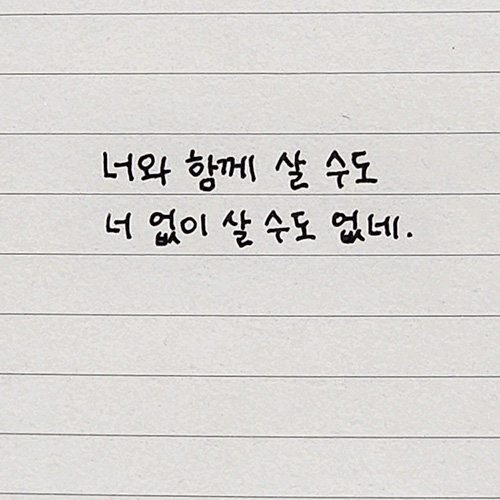 너와 함께 살 수도
너 없이 살 수도 없네.